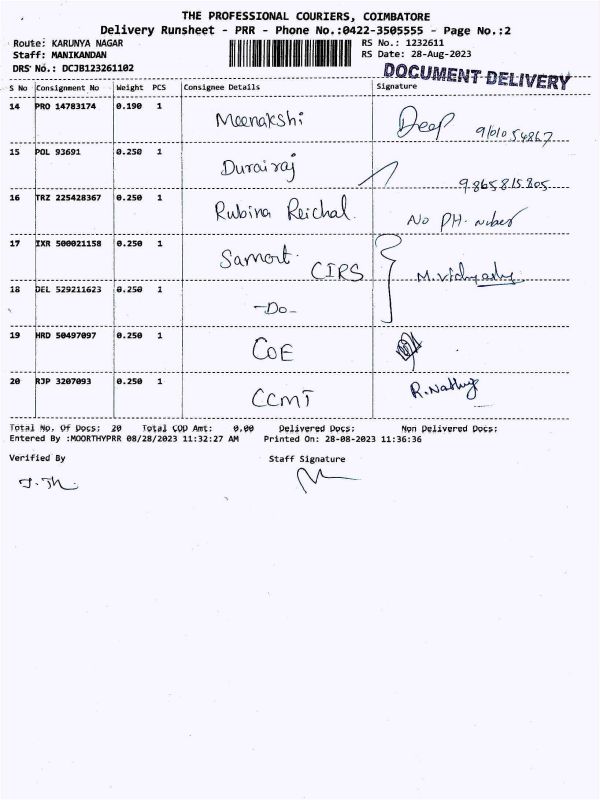 THE PROFESSIONAL COURIERS, COIMBATORE
Delivery Runsheet - PRR - Phone No.:0422-3505555 - Page No.:2
Route: KARUNYA NAGAR RS No.: 1232611
Staff: MANIKANDAN RS Date: 28-Aug-2023
DRS No.: DCJB123261102
DOCUMENT DELIVERY
S No Consignment No Weight PCS Consignee Details Signature
14 PRO 14783174 0.190 1 Meenakshi Deep
15 POL 93691 0.250 1 Durairaj 9865815805
16 TRZ 225428367 0.250 1 Rubina Reichal No PH.
17 IXR 500021158 0.250 1 CIRS
18 DEL 529211623 0.250 1 -Do-
19 HRD 50497097 0.250 1 COE
20 RJP 3207093 0.250 1 CCMT
Total No. Of Docs: 20 Total COD Amt: 0.00 Delivered Docs: Non Delivered Docs:
Entered By :MOORTHYPRR 08/28/2023 11:32:27 AM Printed On: 28-08-2023 11:36:36
Verified By Staff Signature